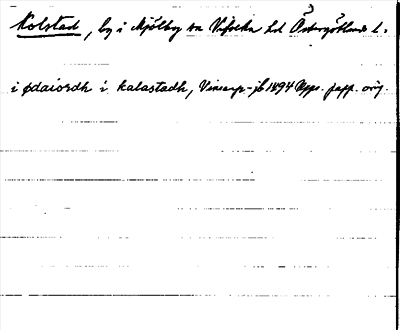 Kolstad, by i Mjölby sn Vifolka hd Östergötlands l.
i ødaiordh i kalastadh, Vinsarp-jb 1494 Upps. papp. orig.